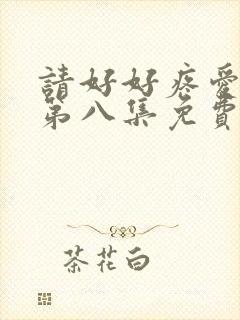 請好好疼愛
第八集免費
茶花白